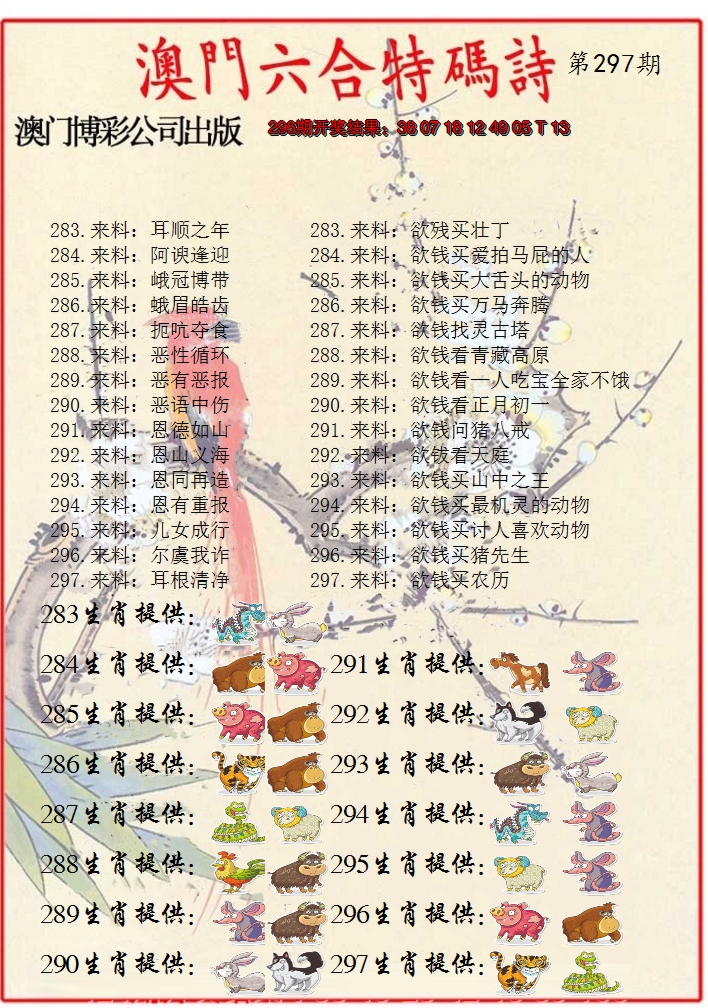 澳門六合特碼詩 第297期
澳门博彩公司出版 296期开奖结果：38 07 18 12 49 05 T 13
283.来料：耳顺之年 283.来料：欲残买壮丁
284.来料：阿谀逢迎 284.来料：欲钱买爱拍马屁的人
285.来料：峨冠博带 285.来料：欲钱买大舌头的动物
286.来料：蛾眉皓齿 286.来料：欲钱买万马奔腾
287.来料：扼吭夺食 287.来料：欲钱找灵古塔
288.来料：恶性循环 288.来料：欲钱看青藏高原
289.来料：恶有恶报 289.来料：欲钱看一人吃宝全家不饿
290.来料：恶语中伤 290.来料：欲钱看正月初一
291.来料：恩德如山 291.来料：欲钱问猪八戒
292.来料：恩山义海 292.来料：欲钹看天庭
293.来料：恩同再造 293.来料：欲钱买山中之王
294.来料：恩有重报 294.来料：欲钱买最机灵的动物
295.来料：儿女成行 295.来料：欲钱买讨人喜欢动物
296.来料：尔虞我诈 296.来料：欲钱买猪先生
297.来料：耳根清净 297.来料：欲钱买农历
283生肖提供：
284生肖提供： 291生肖提供：
285生肖提供： 292生肖提供：
286生肖提供： 293生肖提供：
287生肖提供： 294生肖提供：
288生肖提供： 295生肖提供：
289生肖提供： 296生肖提供：
290生肖提供： 297生肖提供：